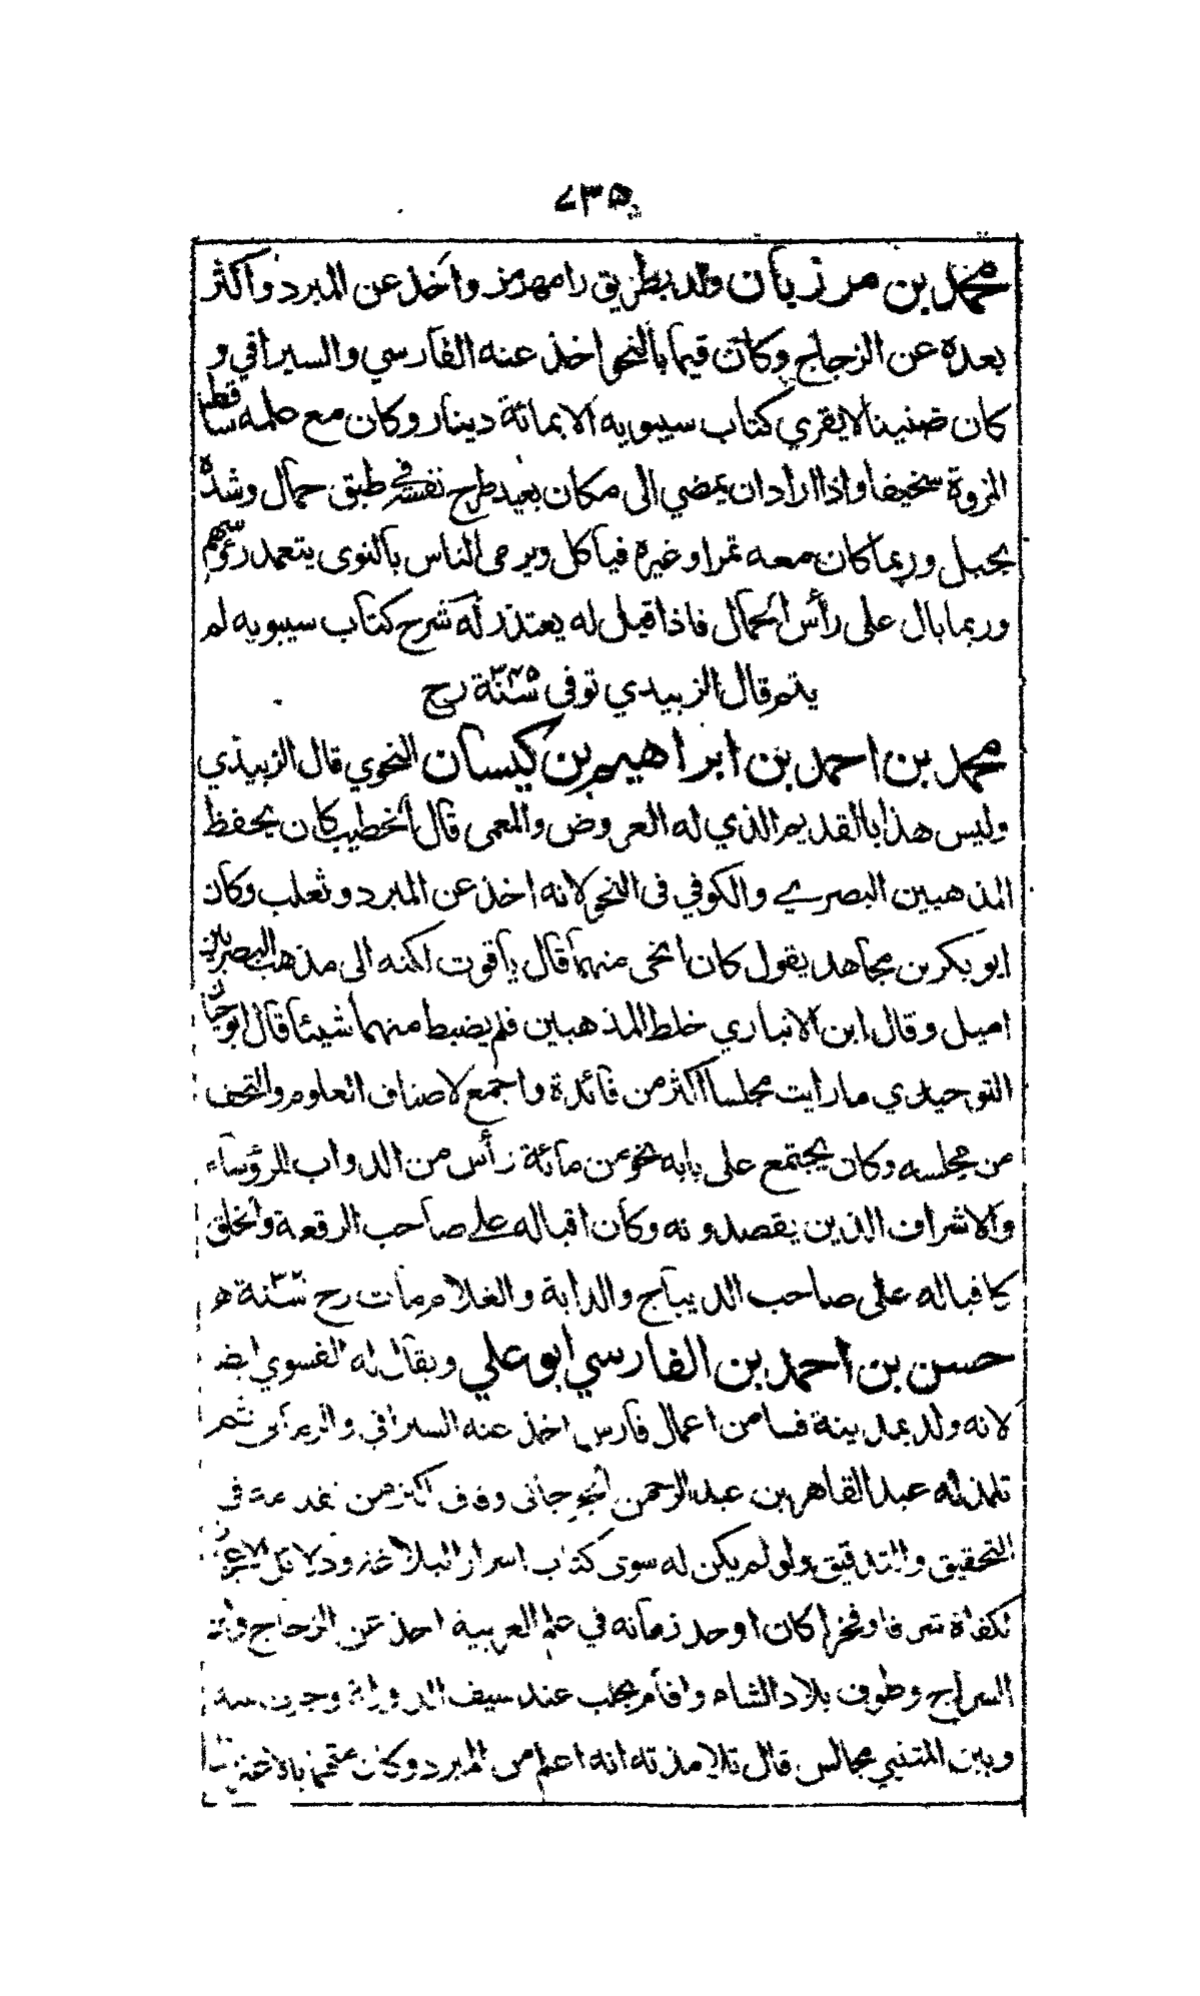 ٧٣٥
محمد بن مرزبان ولد بطريق رامهرمز واخذ عن المبرد واكثر
بعده عن الزجاج وكان قيما بالنحو اخذ عنه الفارسي والسيرافي و
كان ضنينا لا يقري كتاب سيبويه الا بمائة دينار وكان مع علمه ساقط
المروة سخيفا واذا اراد ان يمضي الى مكان بعيد طرح نفسه في طبق حمال وشده
بحبل وربما كان معه تمرا وغيره فياكل ويرمى الناس بالنوى يتعمد رؤسهم
وربما بال على رأس الحمال فاذا قيل له يعتذر له شرح كتاب سيبويه لم
يتم قال الزبيدي توفى سنة ٣٤٥ رح
محمد بن احمد بن ابراهيم بن كيسان النحوي قال الزبيدي
وليس هذا بالقديم الذي له العروض والمعمى قال الخطيب كان يحفظ
المذهبين البصري والكوفي فى النحو لانه اخذ عن المبرد وثعلب وكان
ابو بكر بن مجاهد يقول كان انحى منهما قال ياقوت لكنه الى مذهب البصريين
اميل وقال ابن الانباري خلط المذهبين فلم يضبط منهما شيئا قال ابو حيان
التوحيدي ما رايت مجلسا اكثر من فائدة واجمع لاصناف العلوم والتحف
من مجلسه وكان يجتمع على بابه نحو من مائة رأس من الدواب للرؤساء
والاشراف الذين يقصدونه وكان اقباله على صاحب الرقعة والخلق
كاقباله على صاحب الديباج والدابة والغلام مات رح سنة ه
حسن بن احمد بن الفارسي ابو علي ويقال له الفسوي ايضا
لانه ولد بمدينة فسا من اعمال فارس اخذ عنه السيرافي و ثم
تلمذ له عبد القاهر بن عبد الرحمن الجرجانى وفاق اكثر من تقدمه في
التحقيق والتدقيق ولو لم يكن له سوى كتاب اسرار البلاغة ودلائل الاعجاز
لكفاه شرفا وفخرا كان اوحد زمانه في علم العربية اخذ عن الزجاج وابن
السراج وطوف بلاد الشام واقام بحلب عند سيف الدولة وجرت بينه
وبين المتنبي مجالس قال تلامذته انه اعلم من المبرد وكان متهما بالاعتزال